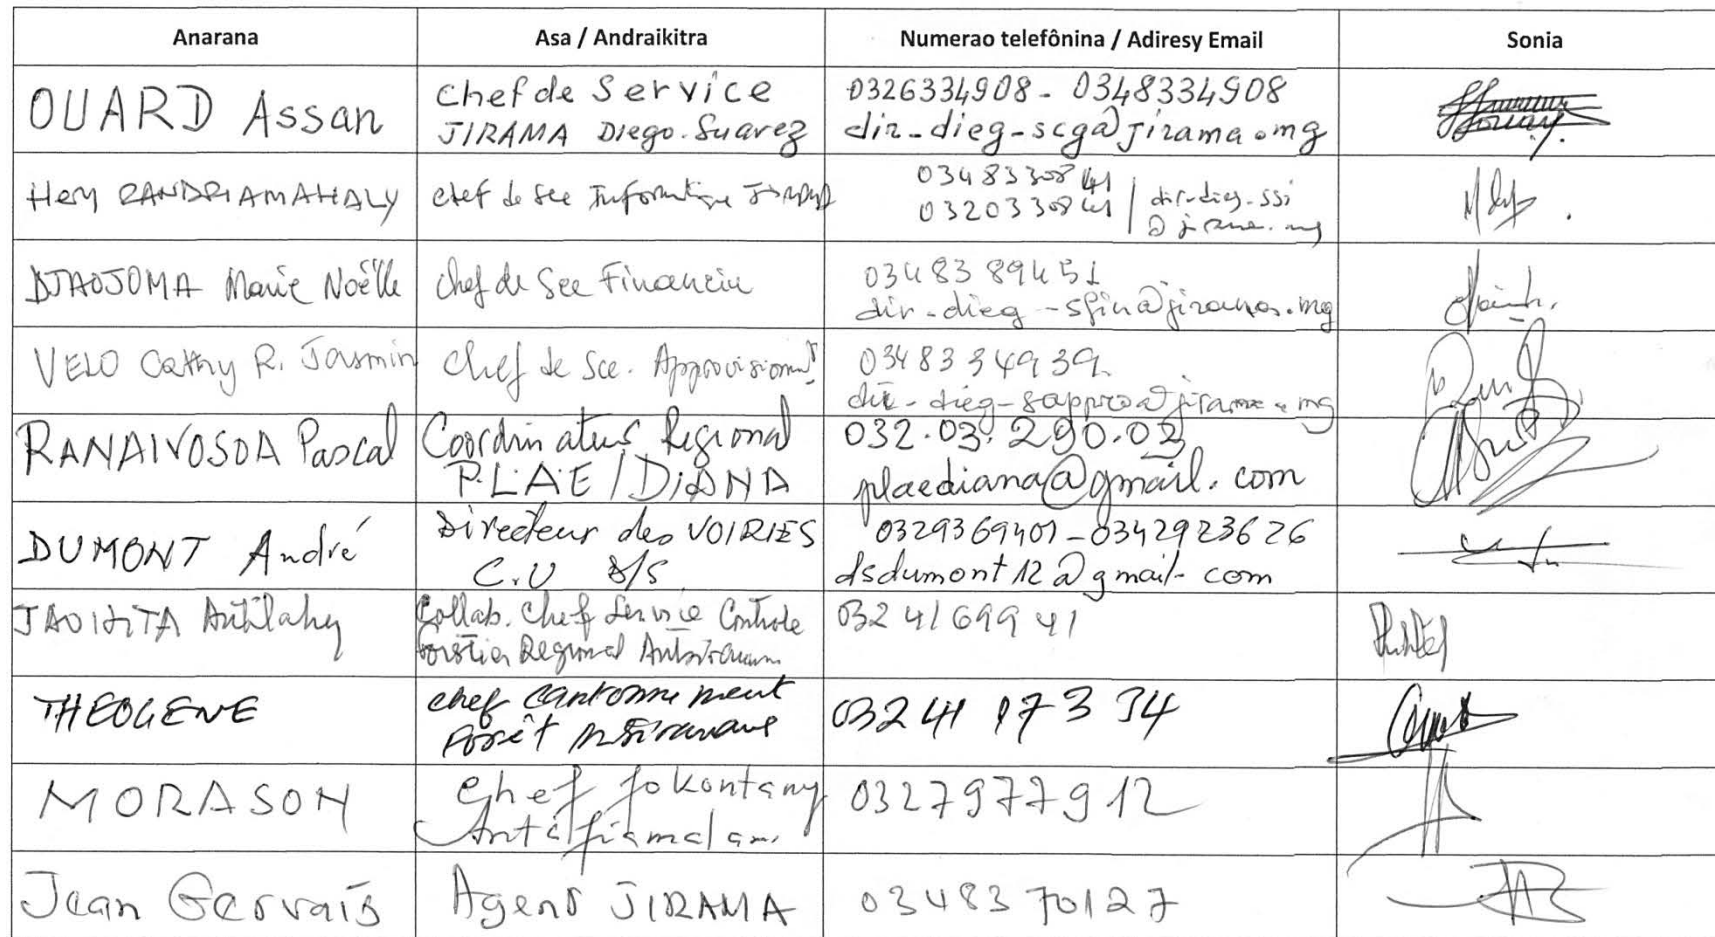 Anarana
Asa / Andraikitra
Numerao telefônina / Adiresy Email
Sonia
OUARD Assan
Chef de Service
JIRAMA Diego-Suarez
0326334908 - 0348334908
dir-dieg-scga@jirama.mg
Hery RANDRIAMAHALY
Chef de Sce Informatique JIRAMA
0348330841
0320330841 / dir-dieg-ssi
@jirama.mg
DJAOJOMA Marie Noëlle
Chef de Sce Financier
0348389451
dir-dieg-sfin@jirama.mg
VELO Cathy R. Jasmin
Chef de Sce. Approvisionnt
0348334939
dir-dieg-sappro@jirama.mg
RANAIVOSOA Pascal
Coordinateur Regional
PLAE / DIANA
032.03.290.02
plaediana@gmail.com
DUMONT André
Directeur des VOIRIES
C.U D/S
0329369401-0342923626
dsdumont12@gmail.com
Antilahy
Collab. Chef Service Controle
Forestier Regional
032 41 699 41
THEOGENE
chef cantonnement
Forêt Antsiranana
032 41 17 3 34
MORASON
Chef fokontany
0327977912
Jean Gervais
Agent JIRAMA
0348370127